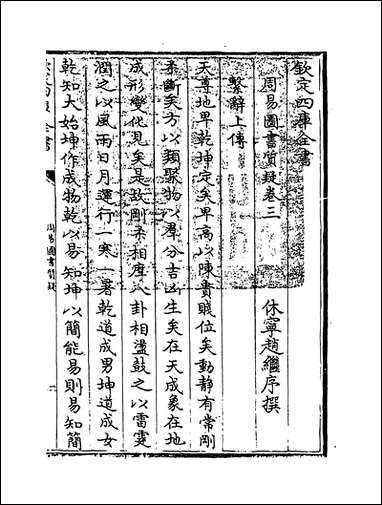 欽定四庫全書
周易圖書質疑卷三 休寧趙繼序撰
繫辭上傳
天尊地卑乾坤定矣卑高以陳貴賤位矣動靜有常剛
柔斷矣方以類聚物以羣分吉凶生矣在天成象在地
成形變化見矣是故剛柔相摩八卦相盪鼓之以雷霆
潤之以風雨日月運行一寒一暑乾道成男坤道成女
乾知大始坤作成物乾以易知坤以簡能易則易知簡
全書
周易圖書質疑